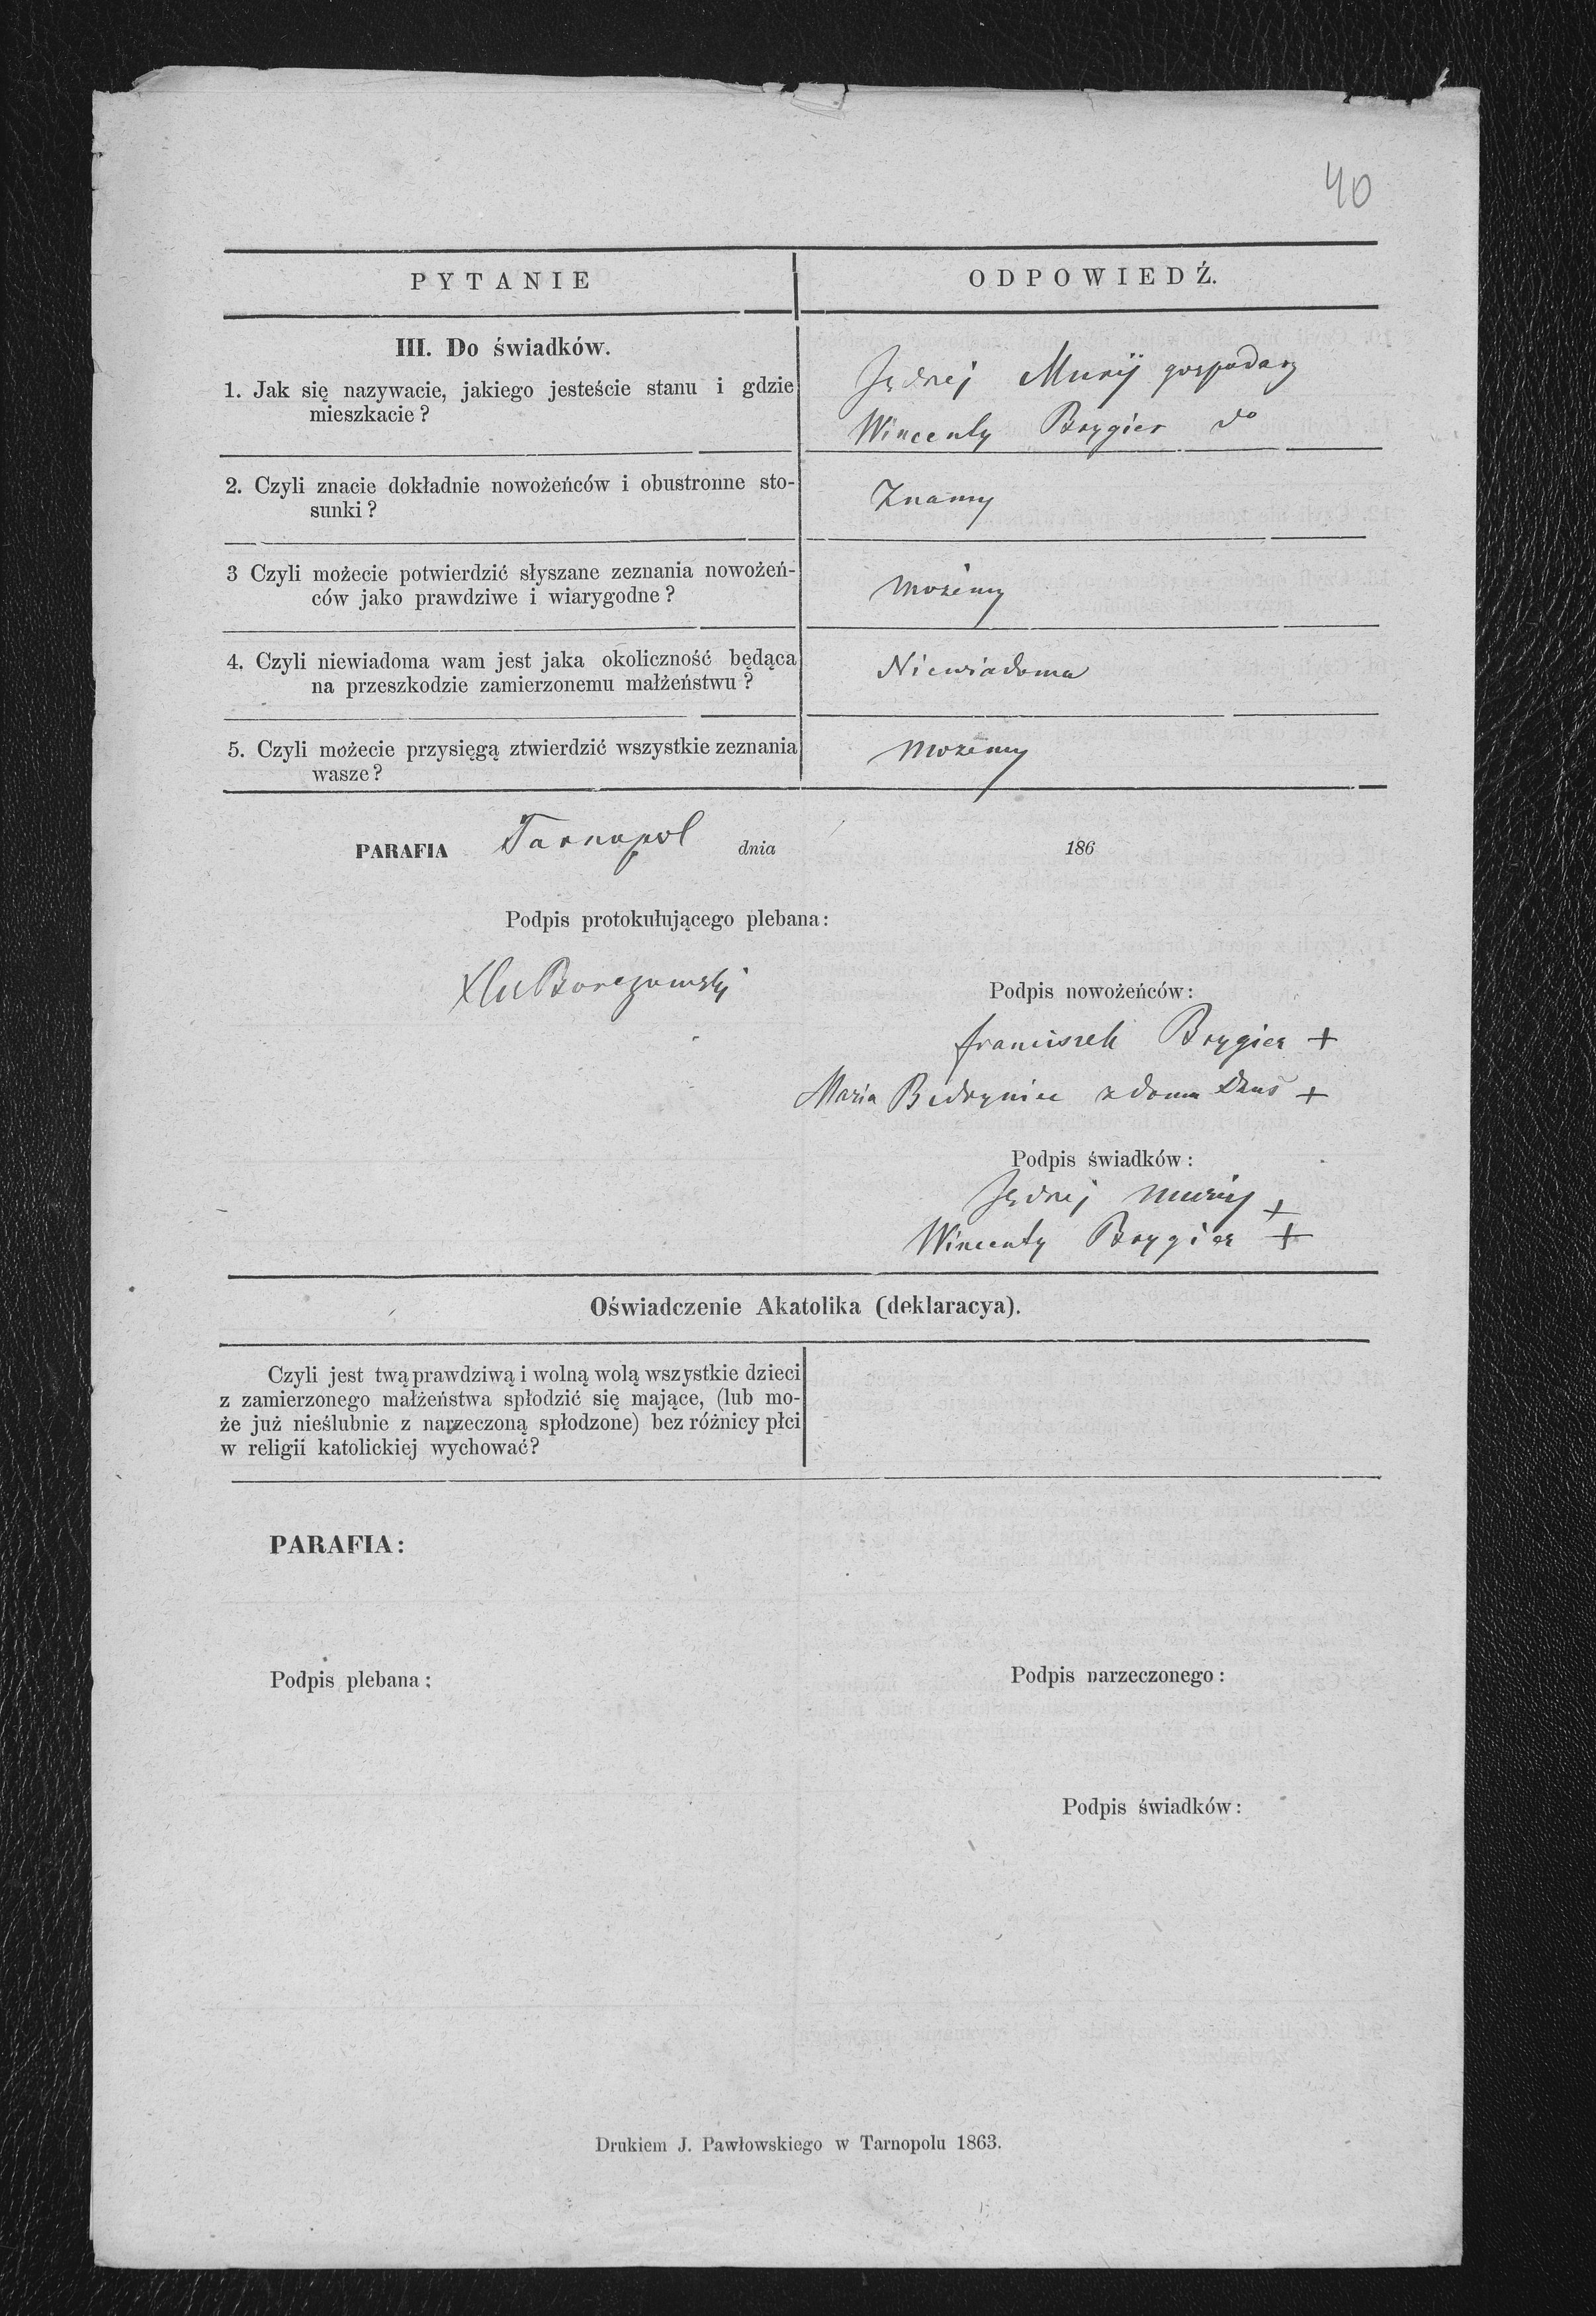 40
PYTANIE
ODPOWIEDŹ.
III. Do świadków.
1. Jak się nazywacie, jakiego jesteście stanu i gdzie
mieszkacie?
Jędrzej Muryj gospodarz
Wincenty Brygier do
2. Czyli znacie dokładnie nowożeńców i obustronne sto-
sunki?
Znamy
3 Czyli możecie potwierdzić słyszane zeznania nowożeń-
ców jako prawdziwe i wiarygodne?
możemy
4. Czyli niewiadoma wam jest jaka okoliczność będąca
na przeszkodzie zamierzonemu małżeństwu?
Niewiadoma
5. Czyli możecie przysięgą ztwierdzić wszystkie zeznania
wasze?
możemy
PARAFIA Tarnopol dnia 186
Podpis protokułującego plebana:
Podpis nowożeńców:
franciszek Brygier +
Maria Bedryniec z domu +
Podpis świadków:
Jędrzej Muryj +
Wincenty Brygier +
Oświadczenie Akatolika (deklaracya).
Czyli jest twą prawdziwą i wolną wolą wszystkie dzieci
z zamierzonego małżeństwa spłodzić się mające, (lub mo-
że już nieślubnie z narzeczoną spłodzone) bez różnicy płci
w religii katolickiej wychować?
PARAFIA:
Podpis plebana:
Podpis narzeczonego:
Podpis świadków:
Drukiem J. Pawłowskiego w Tarnopolu 1863.